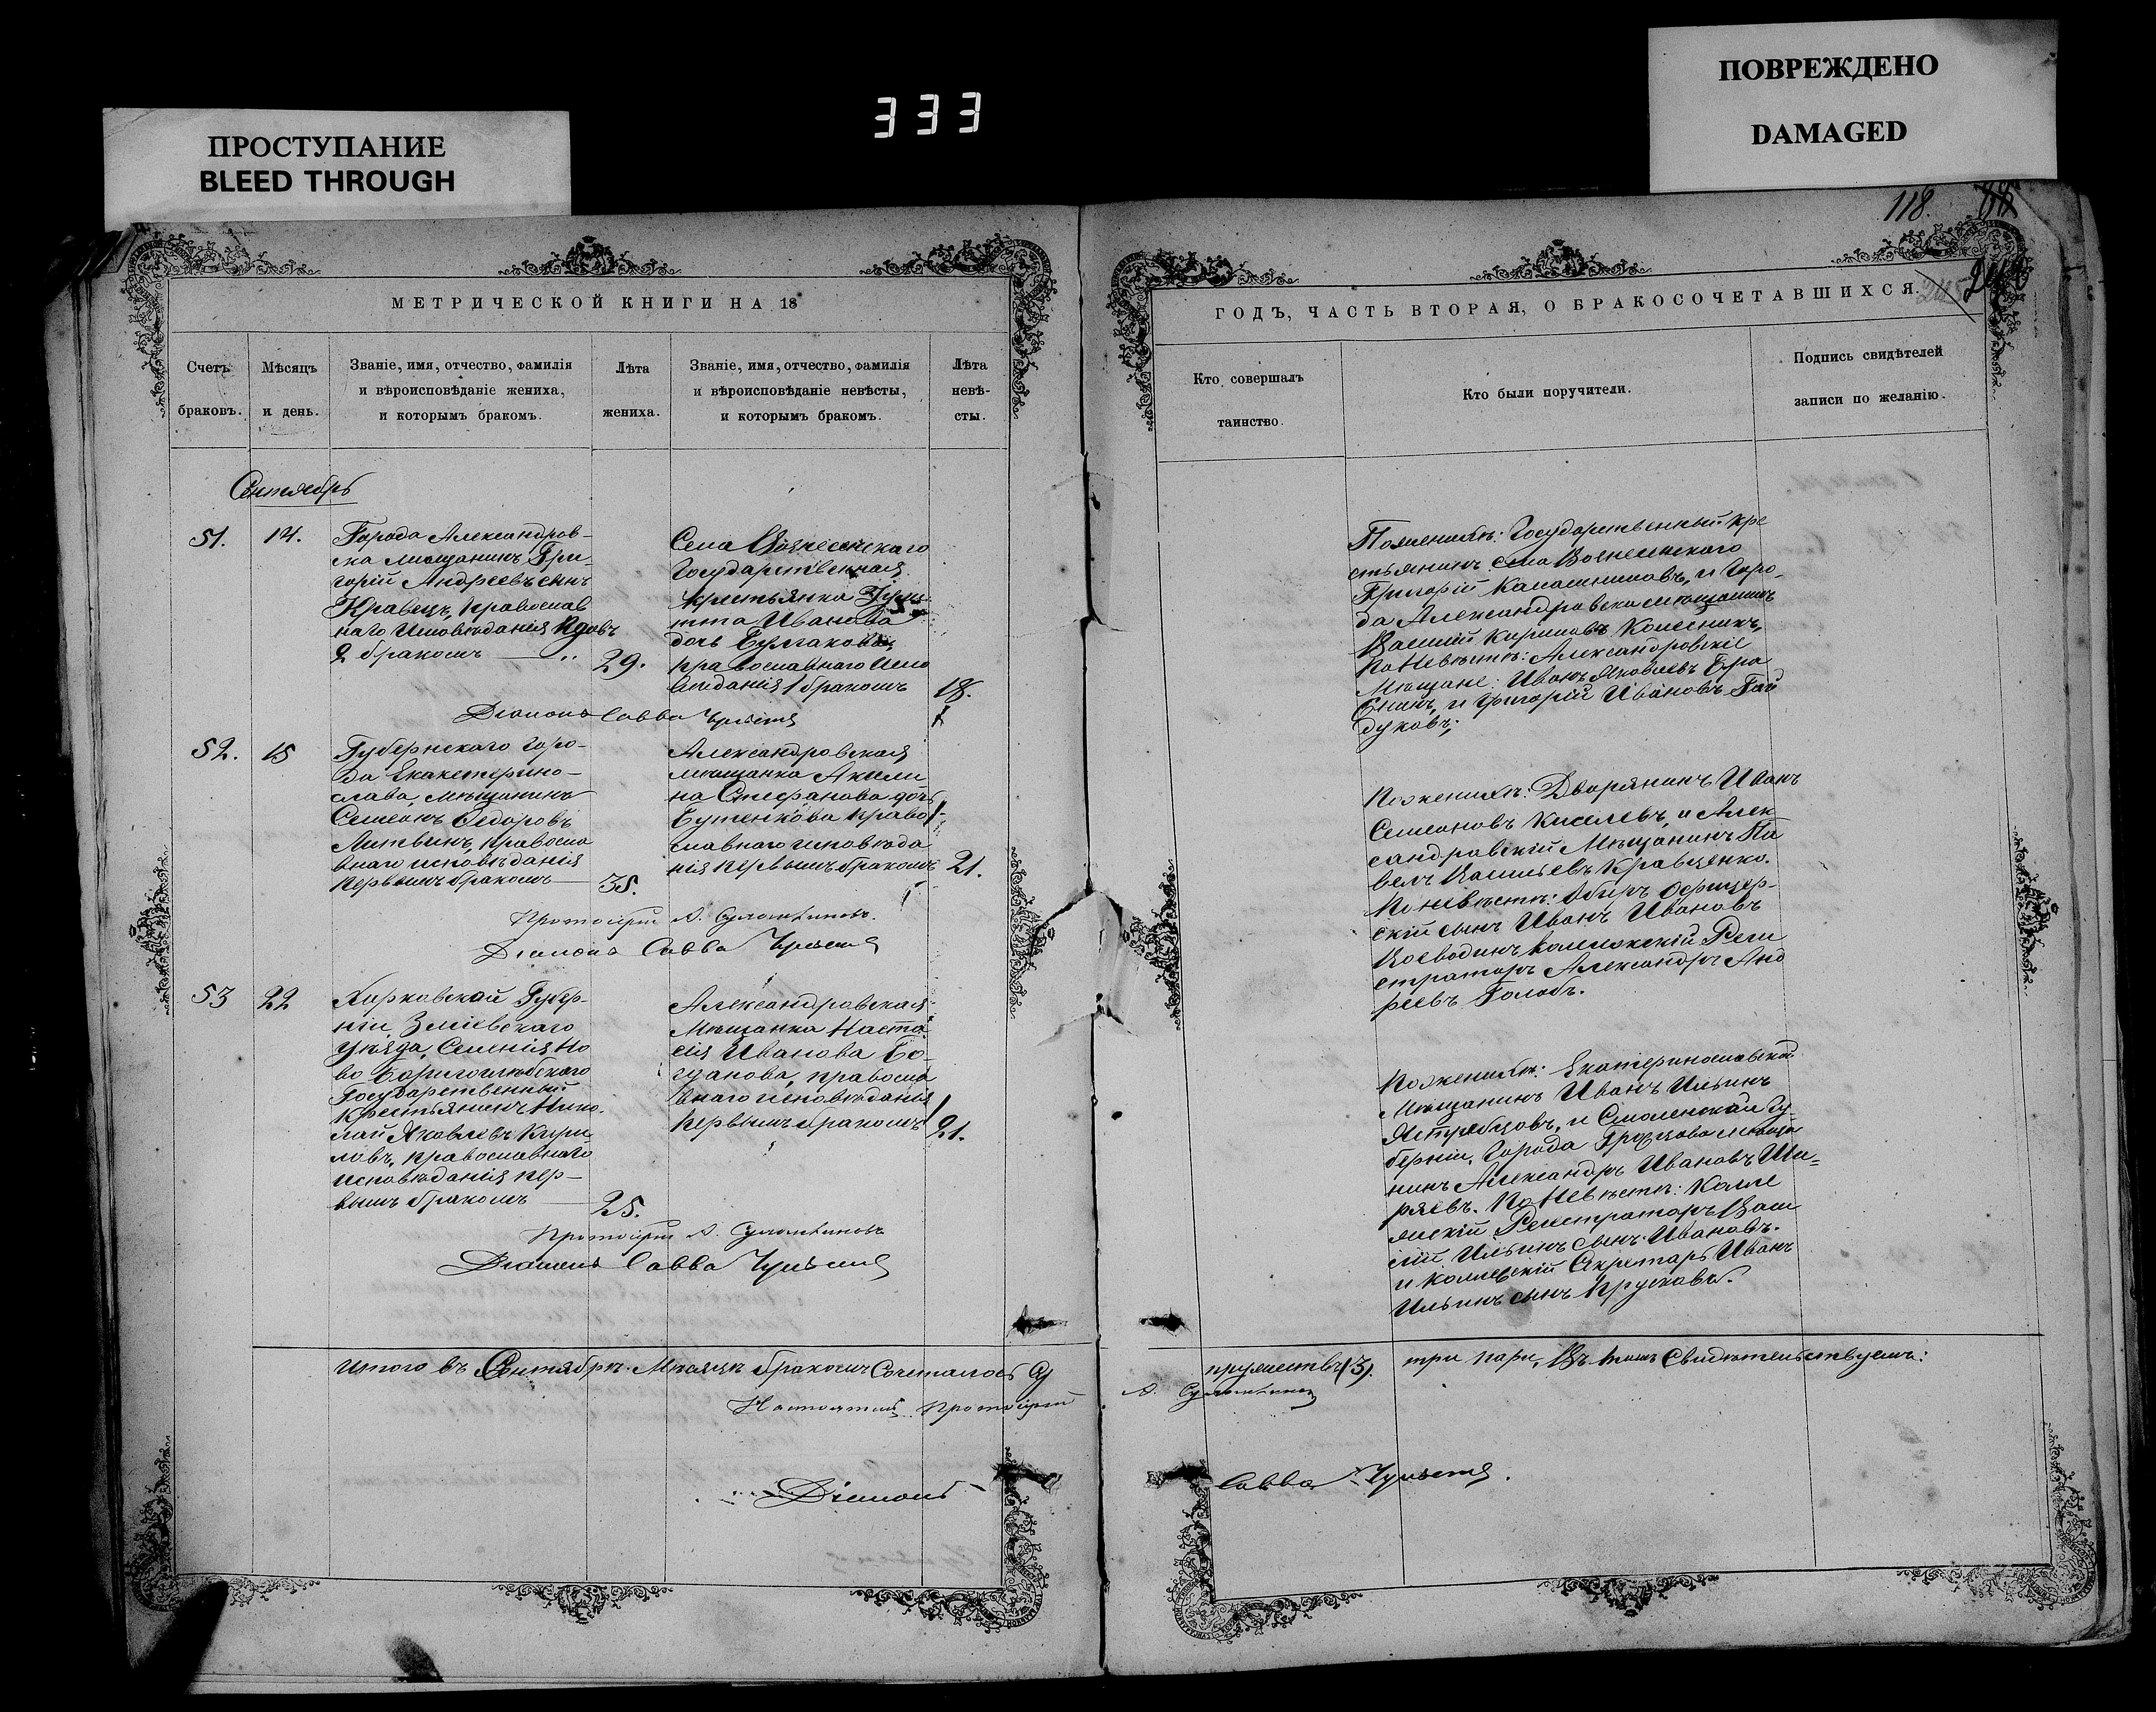 333
ПРОСТУПАНИЕ
BLEED THROUGH
ПОВРЕЖДЕНО
DAMAGED
118.
МЕТРИЧЕСКОЙ КНИГИ НА 18
Счетъ браковъ.
Мѣсяцъ и день.
Званіе, имя, отчество, фамилія и вѣроисповѣданіе жениха, и которымъ бракомъ.
Лѣта жениха.
Званіе, имя, отчество, фамилія и вѣроисповѣданіе невѣсты, и которымъ бракомъ.
Лѣта невѣ-
сты.
Сентябрь
51.
14.
Города Александров-
ска мѣщанинъ Гри-
горій Андреевъ сынъ
Кравецъ, православ
наго исповѣданія вдовъ
2 бракомъ
29.
Села Вознесенскаго
Государственная
крестьянка
Иванова
дочь Булгакова,
православнаго испо
вѣданія 1 бракомъ
18.
Діаконъ Савва
52.
15
Губернскаго горо-
да Екатерино-
слава, мѣщанинъ
Симеонъ Федоровъ
Литвинъ, правосла
внаго исповѣданія
первымъ бракомъ
35.
Александровская
мѣщанка Акили
на Стефанова дочь
Бутенкова право
славнаго исповѣда
нія первымъ бракомъ
21.
Протоіерей А.
Діаконъ Савва
53
22
Харковской Губер-
ніи, Зміевскаго
уѣзда, Селенія Но
во Бориоглѣбскаго
Государственный
крестьянинъ Нико-
лай Яковлевъ Кири
ловъ, православнаго
исповѣданія пер-
вымъ бракомъ
25.
Александровская
мѣщанка Наста
сія Иванова Бо-
гданова, правосла
внаго исповѣданія
первымъ бракомъ
21.
Протоіерей А.
Діаконъ Савва
Итого въ Сентябрѣ Мѣсяцѣ бракомъ Сочеталось
Настоятель Протоіерей
Діаконъ
ГОДЪ, ЧАСТЬ ВТОРАЯ, О БРАКОСОЧЕТАВШИХСЯ.
Кто совершалъ таинство.
Кто были поручители.
Подпись свидѣтелей записи по желанію.
По женихѣ: Государственный кре
стьянинъ села Вознесенскаго
Григорій Калашниковъ, и Горо-
да Александровска мѣщанинъ
Василій Кириловъ Колесникъ,
По Невѣстѣ: Александровскіе
Мѣщане: Иванъ Яковлевъ
и Григорій Ивановъ Гай
дуковъ;
По женихѣ: Дворянинъ Иванъ
Семеновъ Киселевъ, и Алек-
сандровскій Мѣщанинъ Па
велъ Васильевъ Кравченко.
По невѣстѣ: Оберъ офицер-
скій сынъ Иванъ Ивановъ
Воеводинъ Коллежскій Реги
страторъ Александръ Анд
реевъ Голобъ.
По женихѣ: Екатеринославскій
Мѣщанинъ Иванъ Ильинъ
Ястребцовъ, и Смоленской Гу-
берніи, Города мѣща
нинъ Александръ Ивановъ Ши-
ряевъ. По Невѣстѣ: Колле
жскій Регистраторъ Васи
лій Ильинъ сынъ Ивановъ.
и Коллежскій Секретарь Иванъ
Ильинъ сынъ Прусковъ.
(3).
три пары, Въ томъ Свидѣтельствуемъ:
Савва